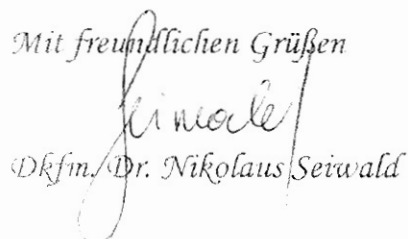 Mit freundlichen Grüßen
Seiwald
Dkfm. Dr. Nikolaus Seiwald